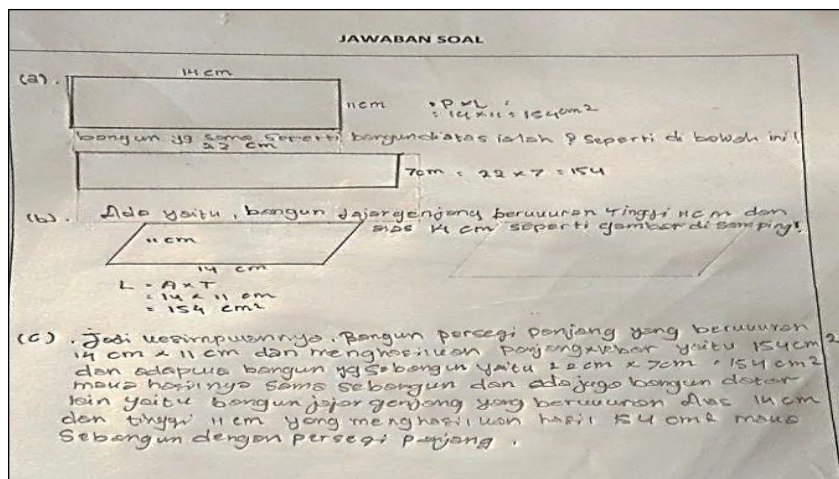 JAWABAN SOAL
(a).
14 cm
11cm
• P x L =
= 14 x 11 = 154cm2
bangun yg sama seperti bangun diatas ialah ? seperti di bawah ini!
22 cm
7cm = 22 x 7 = 154
(b). Ada yaitu, bangun Jajargenjang berukuran tinggi 11cm dan
alas 14 cm seperti gambar disamping!
11 cm
14 cm
L = A x T
= 14 x 11 cm
= 154 cm2
(c). Jadi kesimpulannya. Bangun persegi panjang yang berukuran
14 cm x 11 cm dan menghasilkan panjang x lebar yaitu 154cm2
dan adapula bangun yg sebangun yaitu 22cm x 7cm = 154 cm2
maka hasilnya sama sebangun dan ada juga bangun datar
lain yaitu bangun jajar genjang yang berukuran Alas 14 cm
dan tinggi 11 cm yang menghasilkan hasil 154 cm2 maka
Sebangun dengan persegi panjang.